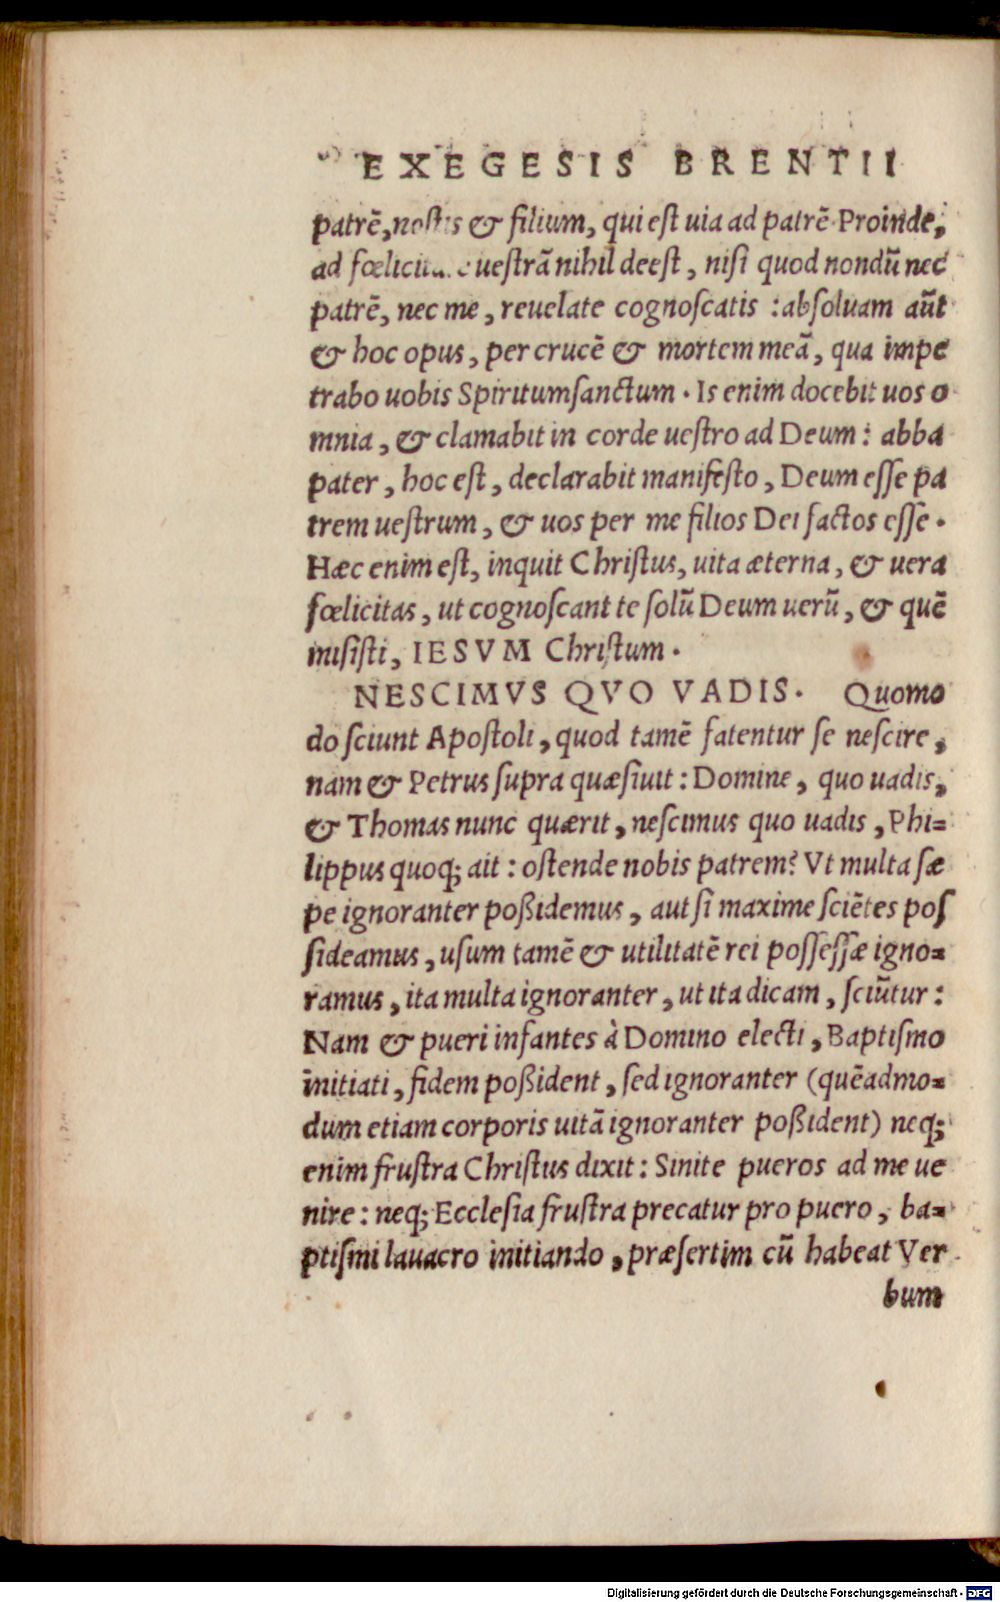 EXEGESIS BRENTII
patrē, nostis & filium, qui est uia ad patrē. Proinde,
ad uestrā nihil deest, nisi quod nondū nec
patrē, nec me, reuelate cognoscatis: absoluam aūt
& hoc opus, per crucē & mortem meā, qua impe
trabo uobis Spiritumsanctum. Is enim docebit uos o
mnia, & clamabit in corde uestro ad Deum: abba
pater, hoc est, declarabit manifesto, Deum esse pa
trem uestrum, & uos per me filios Dei factos esse.
Hæc enim est, inquit Christus, uita æterna, & uera
fœlicitas, ut cognoscant te solū Deum uerū, & quē
misisti, IESVM Christum.
NESCIMVS QVO VADIS. Quomo
do sciunt Apostoli, quod tamē fatentur se nescire,
nam & Petrus supra quæsiuit: Domine, quo uadis,
& Thomas nunc quærit, nescimus quo uadis, Phi=
lippus quoq; ait: ostende nobis patrem? Vt multa sæ
pe ignoranter poßidemus, aut si maxime sciētes pos
sideamus, usum tamē & utilitatē rei possessæ igno=
ramus, ita multa ignoranter, ut ita dicam, sciūtur:
Nam & pueri infantes à Domino electi, Baptismo
initiati, fidem poßident, sed ignoranter (quēadmo=
dum etiam corporis uitā ignoranter poßident) neq;
enim frustra Christus dixit: Sinite pueros ad me ue
nire: neq; Ecclesia frustra precatur pro puero, ba=
ptismi lauacro initiando, præsertim cū habeat Ver
bum
Digitalisierung gefördert durch die Deutsche Forschungsgemeinschaft - DFG